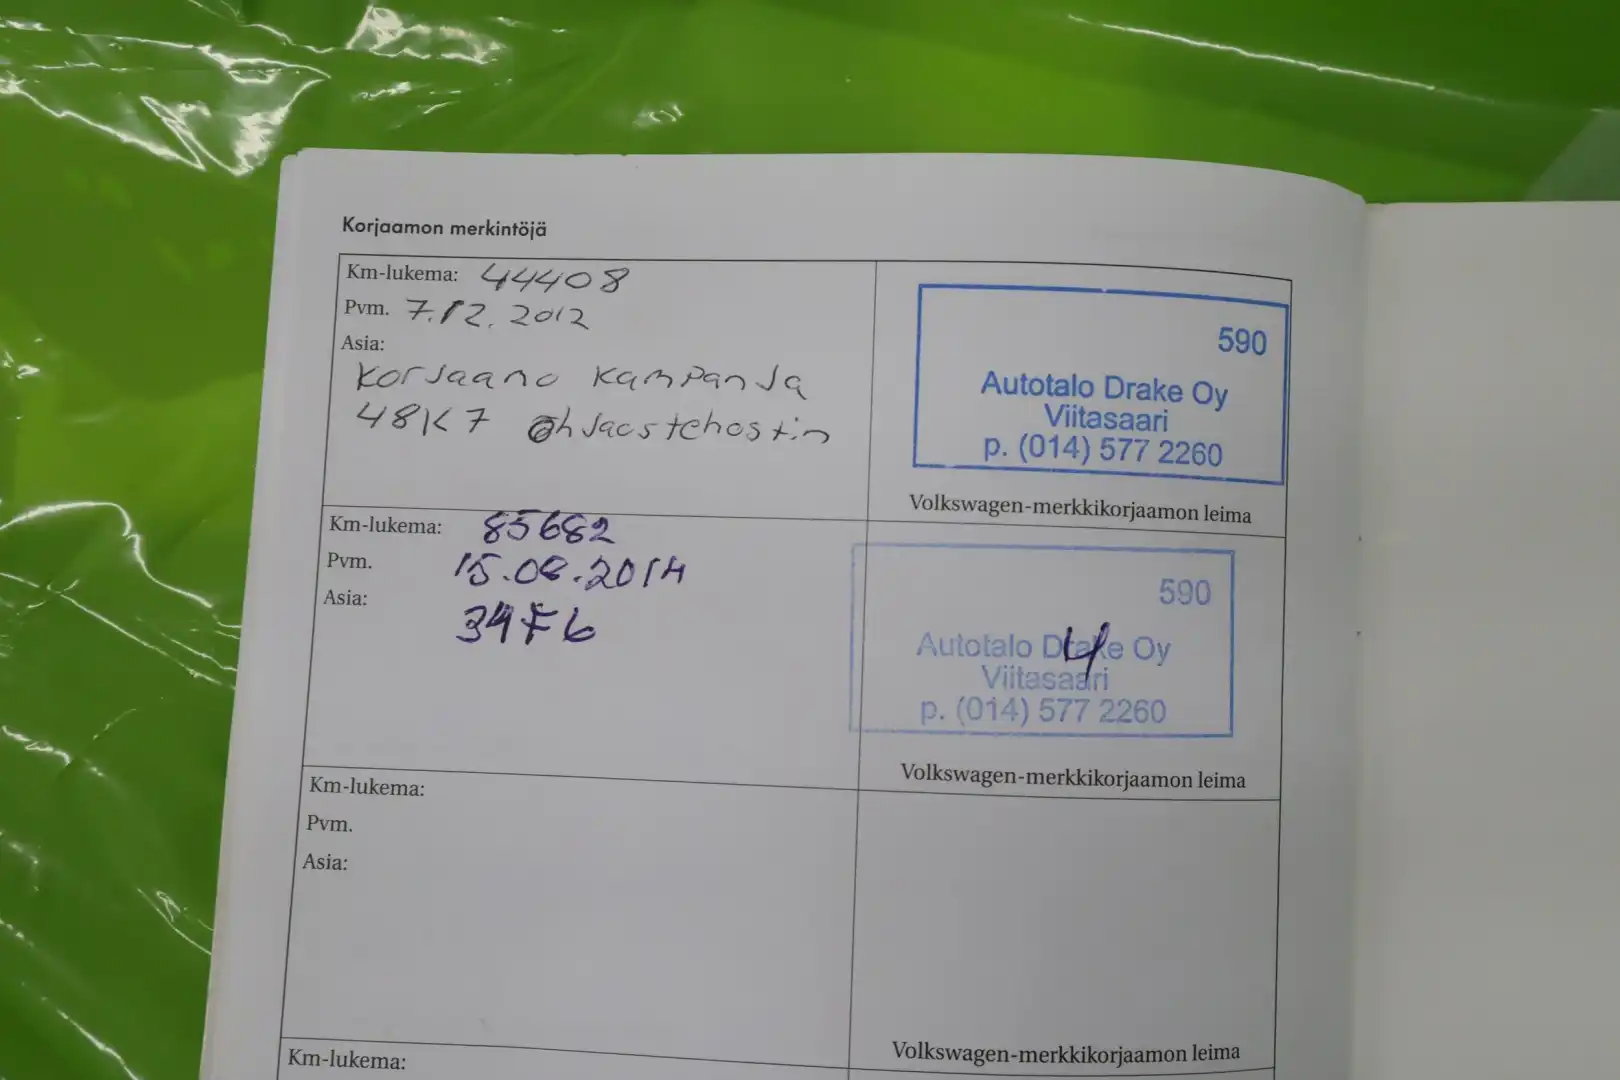 Korjaamon merkintöjä
Km-lukema: 44408
Pvm. 7.12.2012
Asia:
Korjaamo kampanja
48K7 ohjaustehostin
590
Autotalo Drake Oy
Viitasaari
p. (014) 577 2260
Volkswagen-merkkikorjaamon leima
Km-lukema: 85682
Pvm. 15.08.2014
Asia: 34F6
590
Autotalo Drake Oy
Viitasaari
p. (014) 577 2260
Volkswagen-merkkikorjaamon leima
Km-lukema:
Pvm.
Asia:
Volkswagen-merkkikorjaamon leima
Km-lukema: